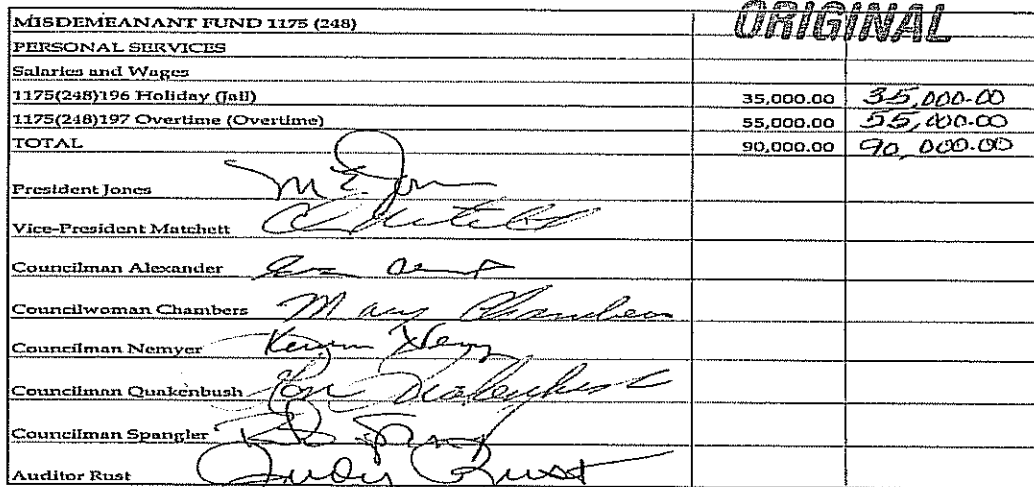 ORIGINAL
MISDEMEANANT FUND 1175 (248)
PERSONAL SERVICES
Salaries and Wages
1175(248)196 Holiday (Jail) 35,000.00 35,000-00
1175(248)197 Overtime (Overtime) 55,000.00 55,000-00
TOTAL 90,000.00 90,000-00
President Jones
Vice-President Matchett
Councilman Alexander
Councilwoman Chambers Mary Chambers
Councilman Nemyer
Councilman Quakenbush Ron Quakenbush
Councilman Spangler
Auditor Rust Judy Rust